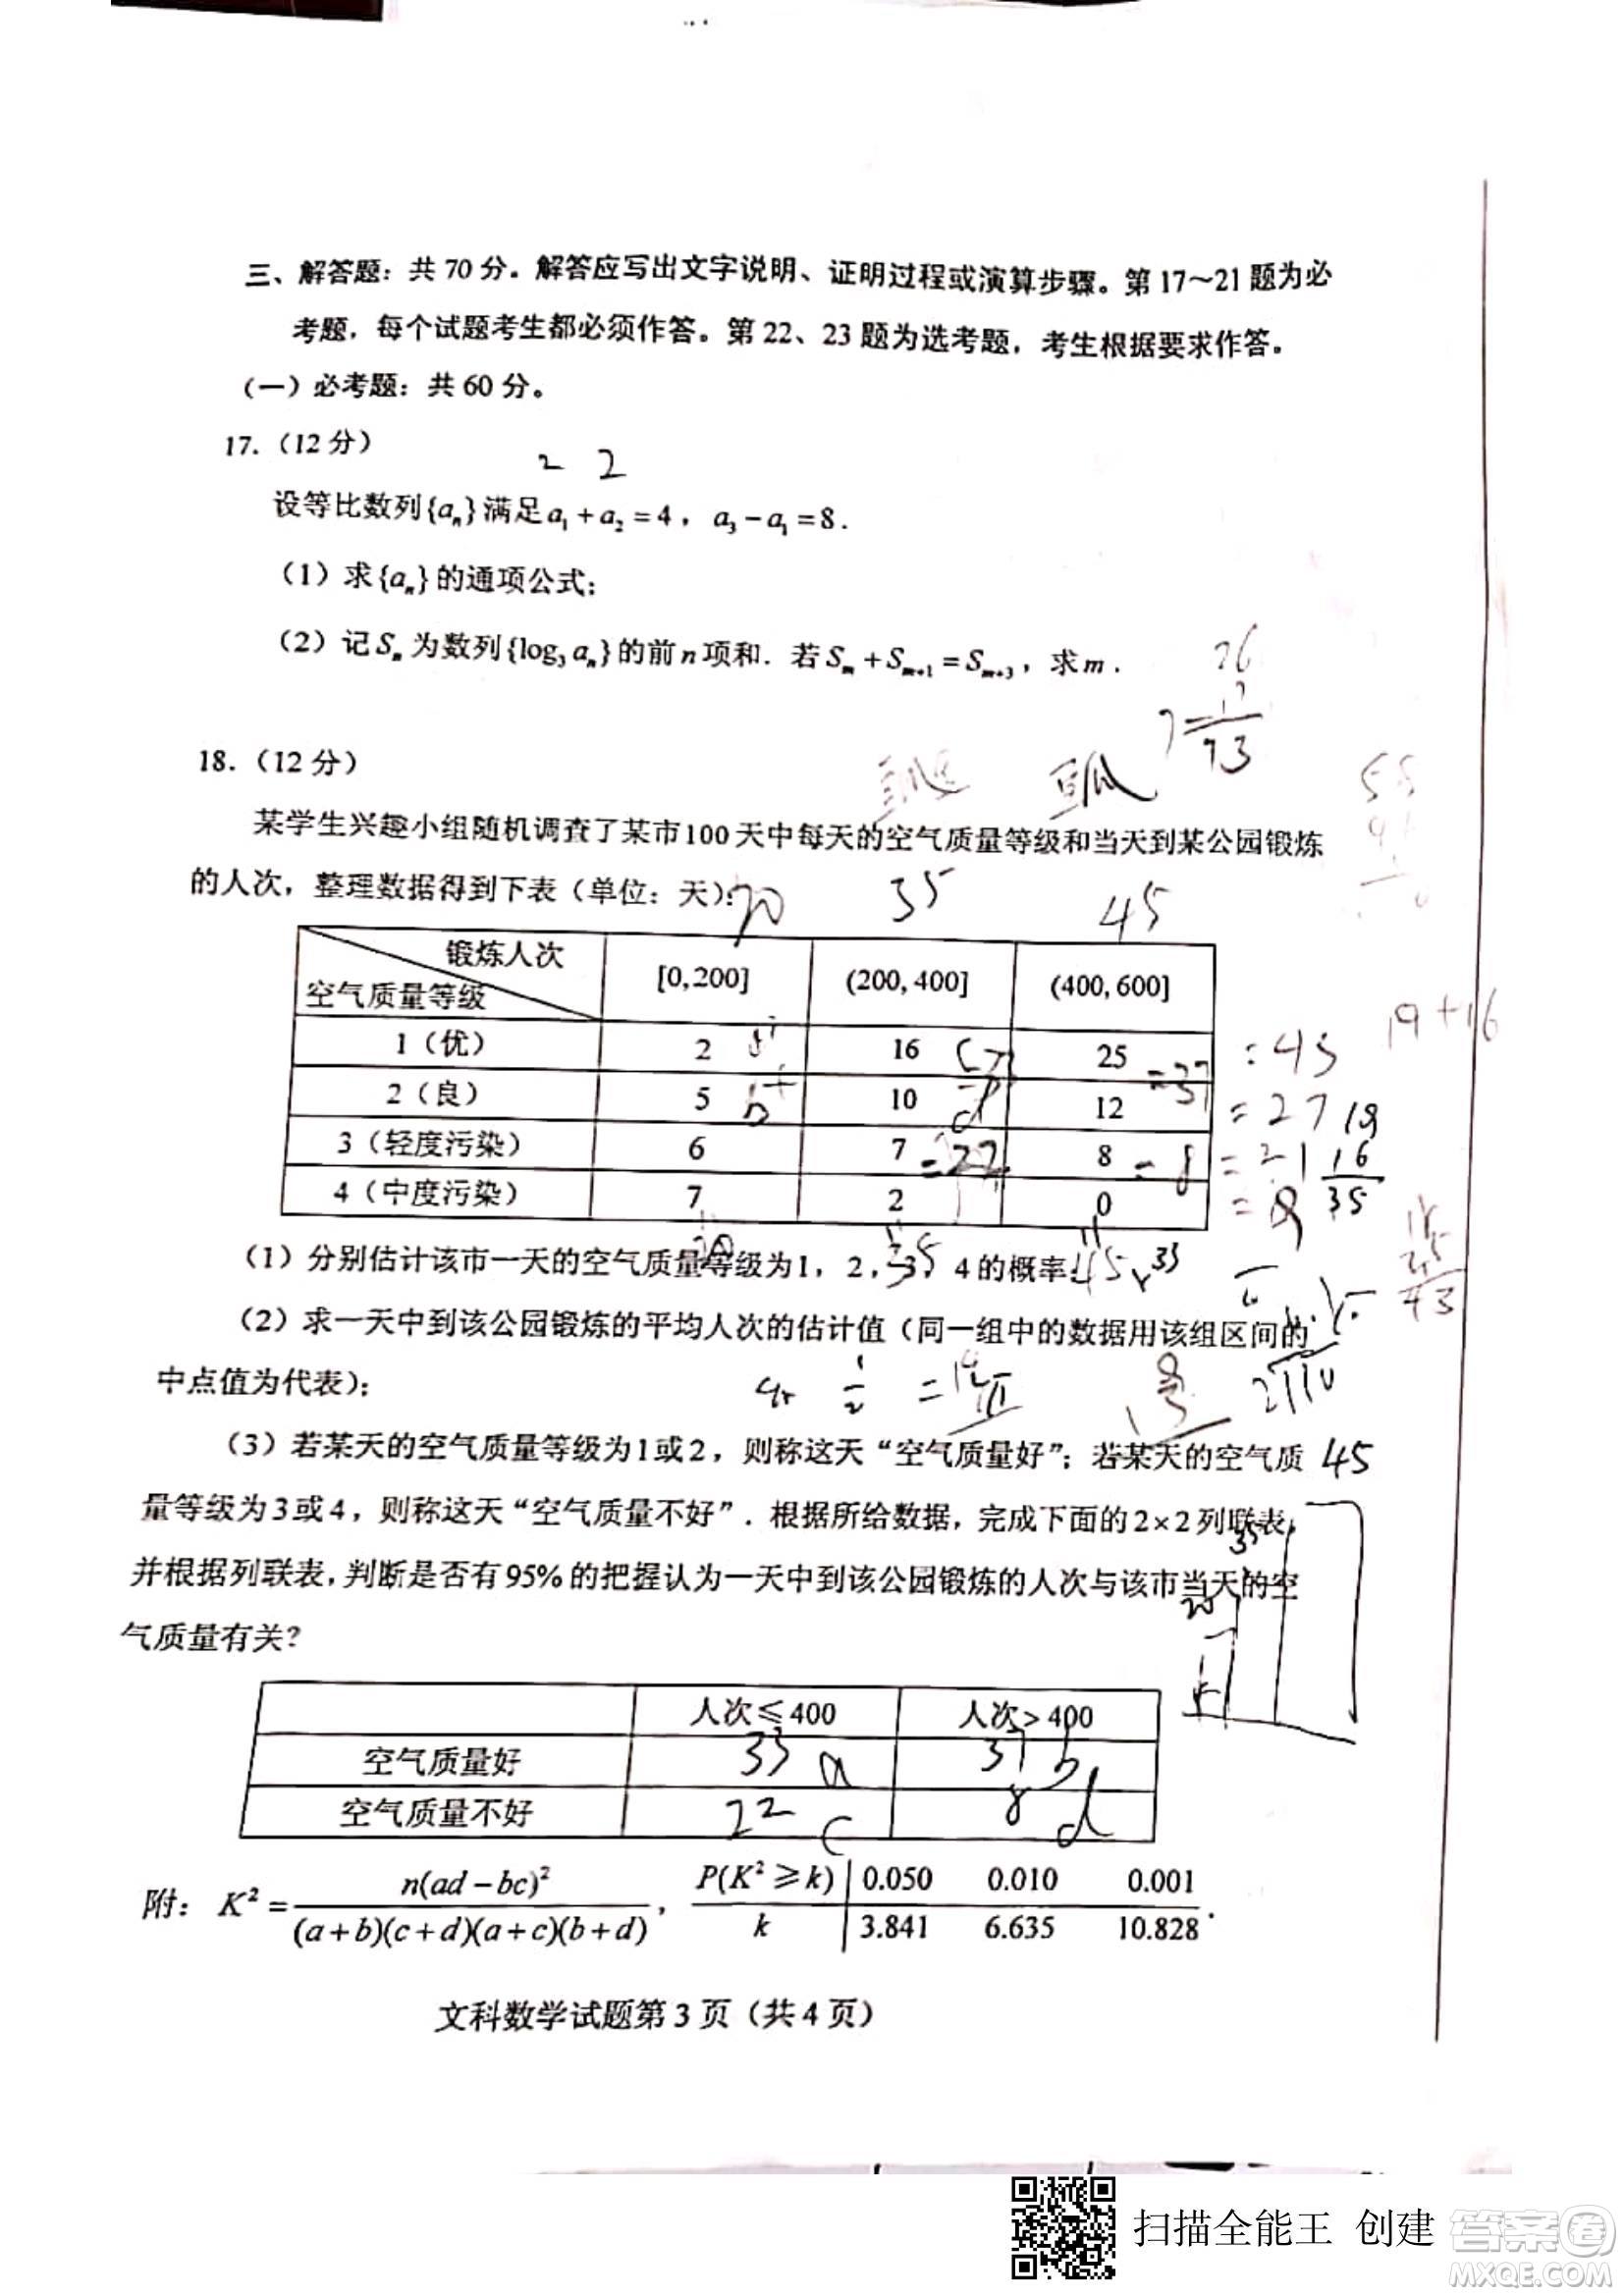 三、解答题：共 70 分。解答应写出文字说明、证明过程或演算步骤。第 17～21 题为必
考题，每个试题考生都必须作答。第 22、23 题为选考题，考生根据要求作答。
（一）必考题：共 60 分。
17.（12 分）
2 2
设等比数列{aₙ}满足a₁+a₂=4，a₃-a₁=8.
（1）求{aₙ}的通项公式；
（2）记Sₙ为数列{log₃aₙ}的前n项和. 若Sₘ+Sₘ₊₁=Sₘ₊₃，求m.
18.（12 分）
豆瓜
某学生兴趣小组随机调查了某市100天中每天的空气质量等级和当天到某公园锻炼
的人次，整理数据得到下表（单位：天）：
35 45
锻炼人次 [0,200] (200,400] (400,600]
空气质量等级
1（优） 2 16 25
2（良） 5 10 12 =37 =27
3（轻度污染） 6 7 =22 8 =8 =21
4（中度污染） 7 2 0
19+16
19
16
35
20 35 45
（1）分别估计该市一天的空气质量等级为1，2，3，4的概率；
（2）求一天中到该公园锻炼的平均人次的估计值（同一组中的数据用该组区间的
中点值为代表）；
（3）若某天的空气质量等级为1或2，则称这天“空气质量好”；若某天的空气质 45
量等级为3或4，则称这天“空气质量不好”. 根据所给数据，完成下面的2×2列联表，
并根据列联表，判断是否有95%的把握认为一天中到该公园锻炼的人次与该市当天的空
气质量有关？
35
20
人次≤400 人次>400
空气质量好 33 a 37 b
空气质量不好 22 c 8 d
附：K²=n(ad-bc)²/(a+b)(c+d)(a+c)(b+d)，
P(K²≥k) 0.050 0.010 0.001
k 3.841 6.635 10.828.
文科数学试题第 3 页（共 4 页）
扫描全能王 创建
答案卷
MXQE.COM